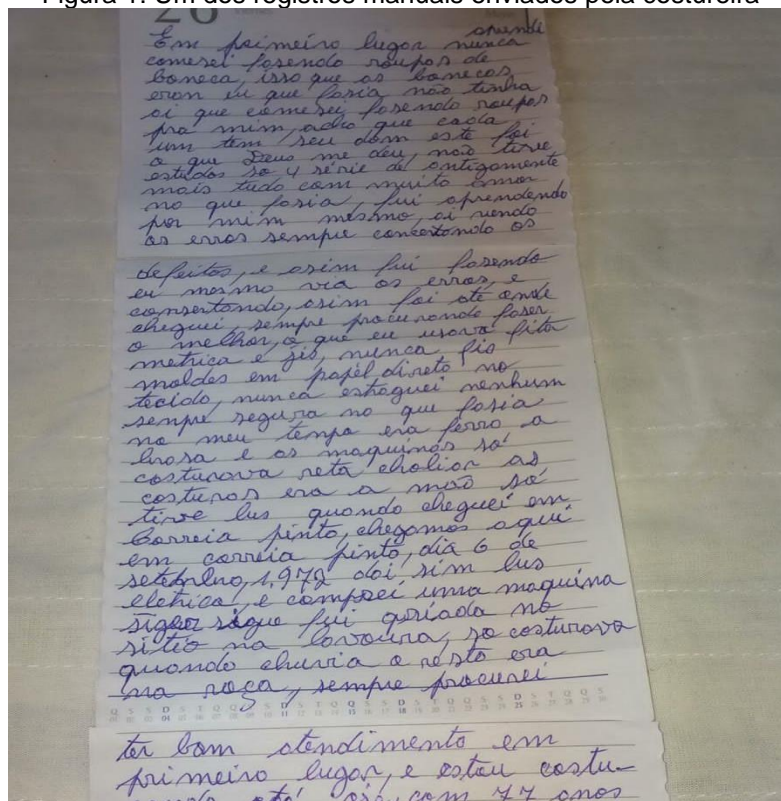 Figura 1: Um dos registros manuais enviados pela costureira
26
aprendi
Em primeiro lugar nunca
comesei fasendo roupas de
boneca, isso que as bonecas
eran eu que fasia não tinha
ai que comesei fasendo roupas
pra mim, acho que cada
um tem seu dom este foi
o que Deus me deu, não tive
estudos so 4 série de antigamente
mais tudo com muito amor
no que fasia, fui aprendendo
por mim mesmo, ai vendo
os erros sempre concertando os
defeitos, e asim fui fasendo
eu mesmo via os erros, e
consertando, asim foi até onde
cheguei, sempre procurando faser
o melhor, o que eu usava fita
metrica e gis, nunca fis
moldes em papel direto no
tecido, nunca estraguei nenhum
sempre segura no que fasia
no meu tempo era ferro a
brasa e as maquinas só
costurava reta chuliar as
costuras era a mão só
tive lus quando cheguei em
Correia pinto, chegamos aqui
em correia pinto, dia 6 de
setembro, 1.972 dai sim lus
eletrica, e comprei uma maquina
sigue fui criada no
sitio na lavoura, so costurava
quando chuvia o resto era
na roça, sempre procurei
ter bom atendimento em
primeiro lugar, e estou costu-
até oje, com 77 anos